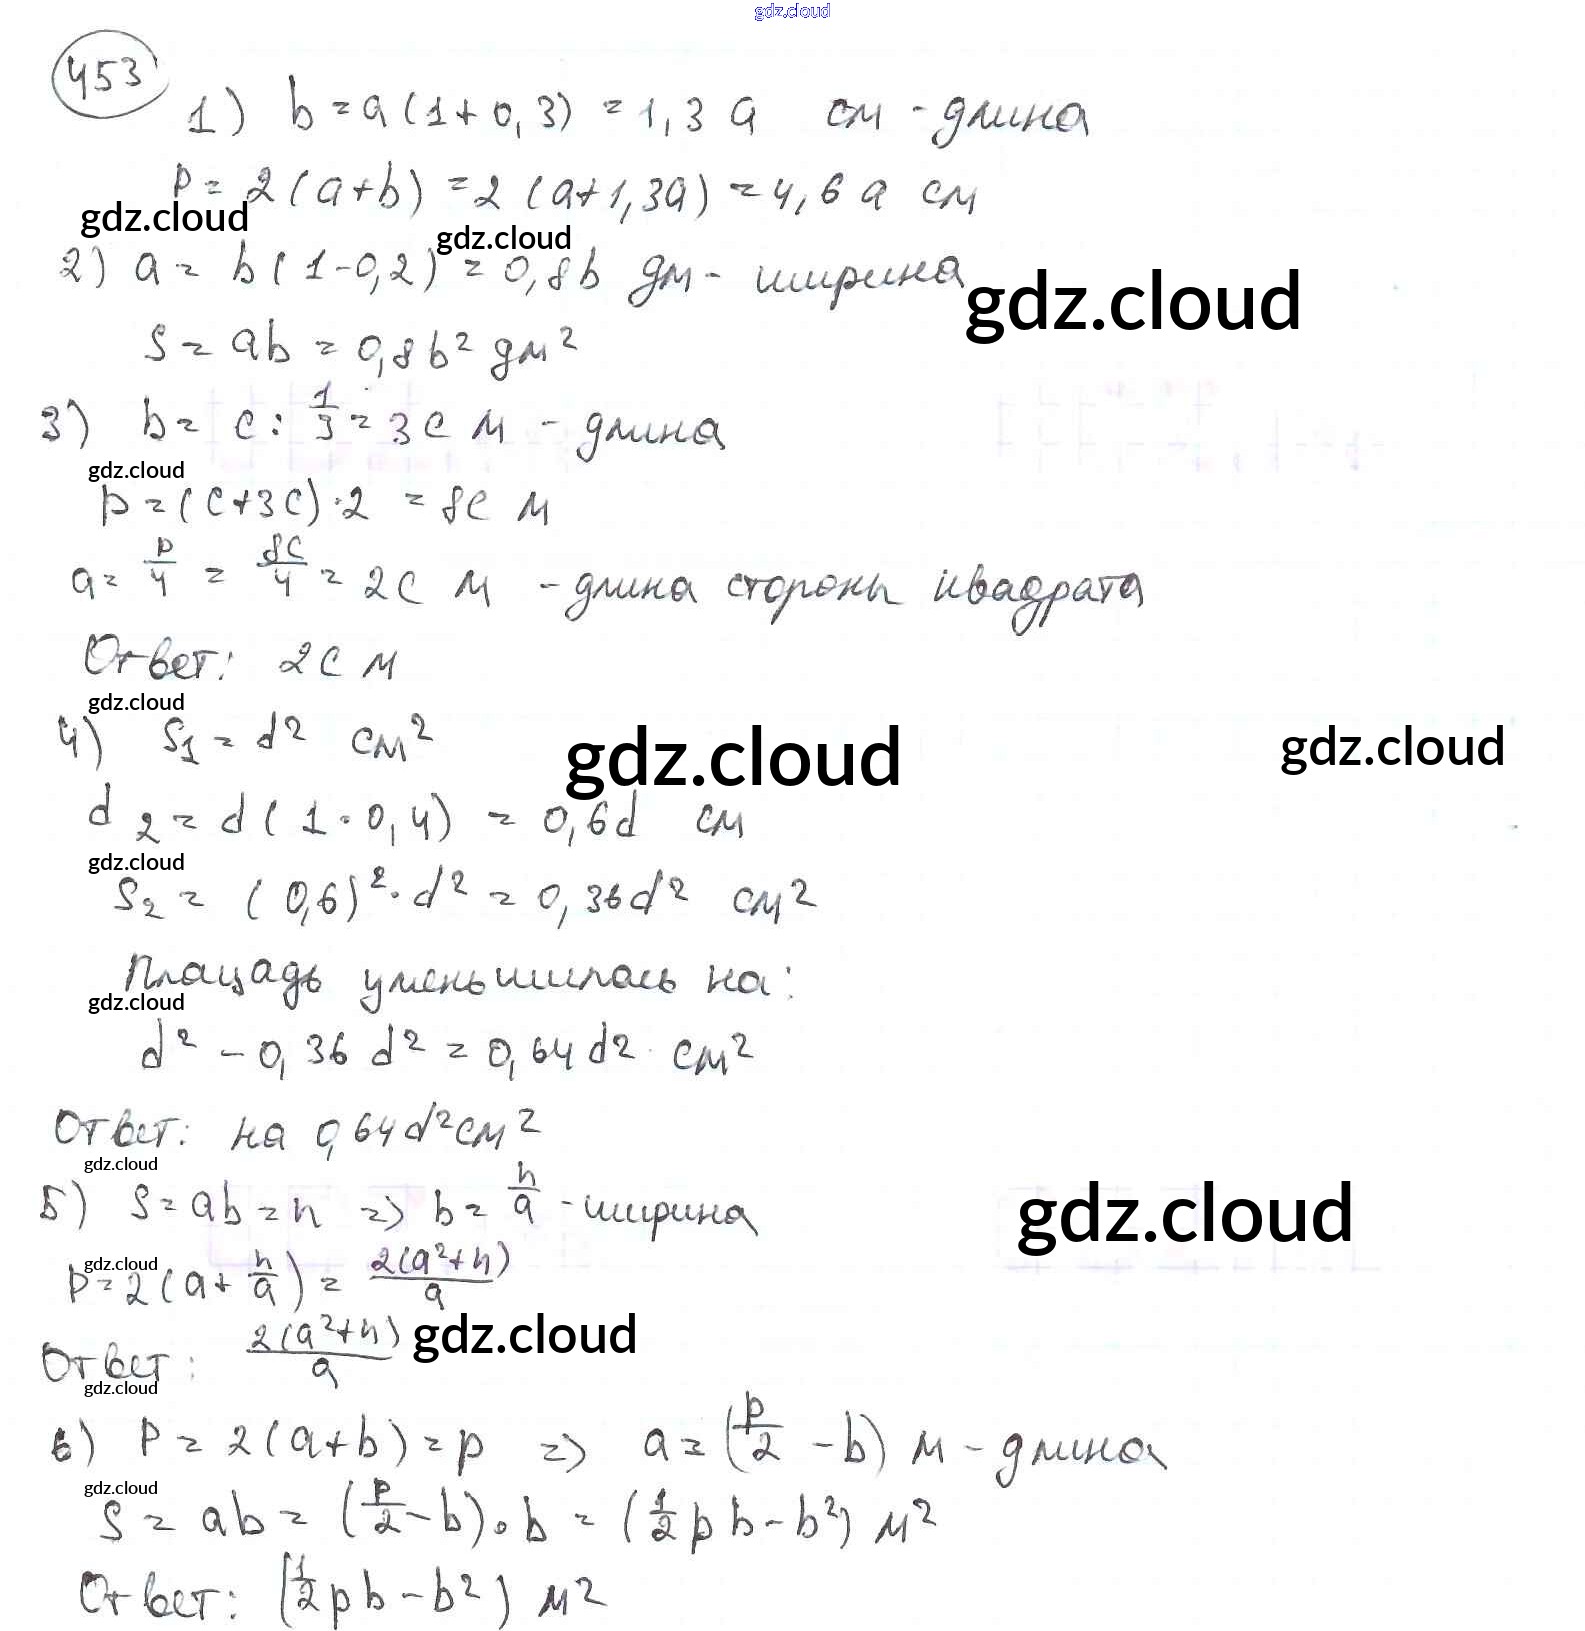 gdz.cloud
453
1) b = a(1+0,3) = 1,3 a см - длина
P = 2(a+b) = 2(a+1,3a) = 4,6 a см
gdz.cloud
gdz.cloud
2) a = b(1-0,2) = 0,8b дм - ширина
gdz.cloud
S = ab = 0,8b² дм²
3) b = c : 1/3 = 3c м - длина
gdz.cloud
p = (c+3c)·2 = 8c м
a = p/4 = 8c/4 = 2c м - длина стороны квадрата
Ответ: 2c м
gdz.cloud
4) S₁ = d² см²
gdz.cloud
gdz.cloud
d₂ = d(1-0,4) = 0,6d см
gdz.cloud
S₂ = (0,6)²·d² = 0,36d² см²
Площадь уменьшилась на:
gdz.cloud
d² - 0,36 d² = 0,64d² см²
Ответ: на 0,64d² см²
gdz.cloud
5) S = ab = n => b = n/a - ширина
gdz.cloud
gdz.cloud
p = 2(a + n/a) = 2(a²+n)/a
Ответ: 2(a²+n)/a
gdz.cloud
gdz.cloud
6) P = 2(a+b) = p => a = (p/2 - b) м - длина
gdz.cloud
S = ab = (p/2 - b)·b = (1/2 pb - b²) м²
Ответ: (1/2 pb - b²) м²